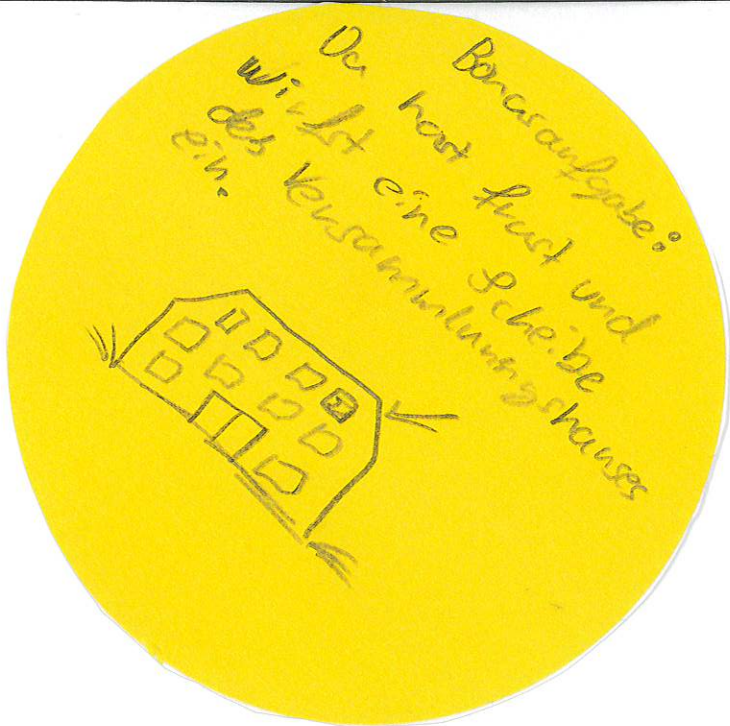 Bonusaufgabe:
Du hast frust und
wirfst eine Scheibe
des Versammlungshauses
ein.